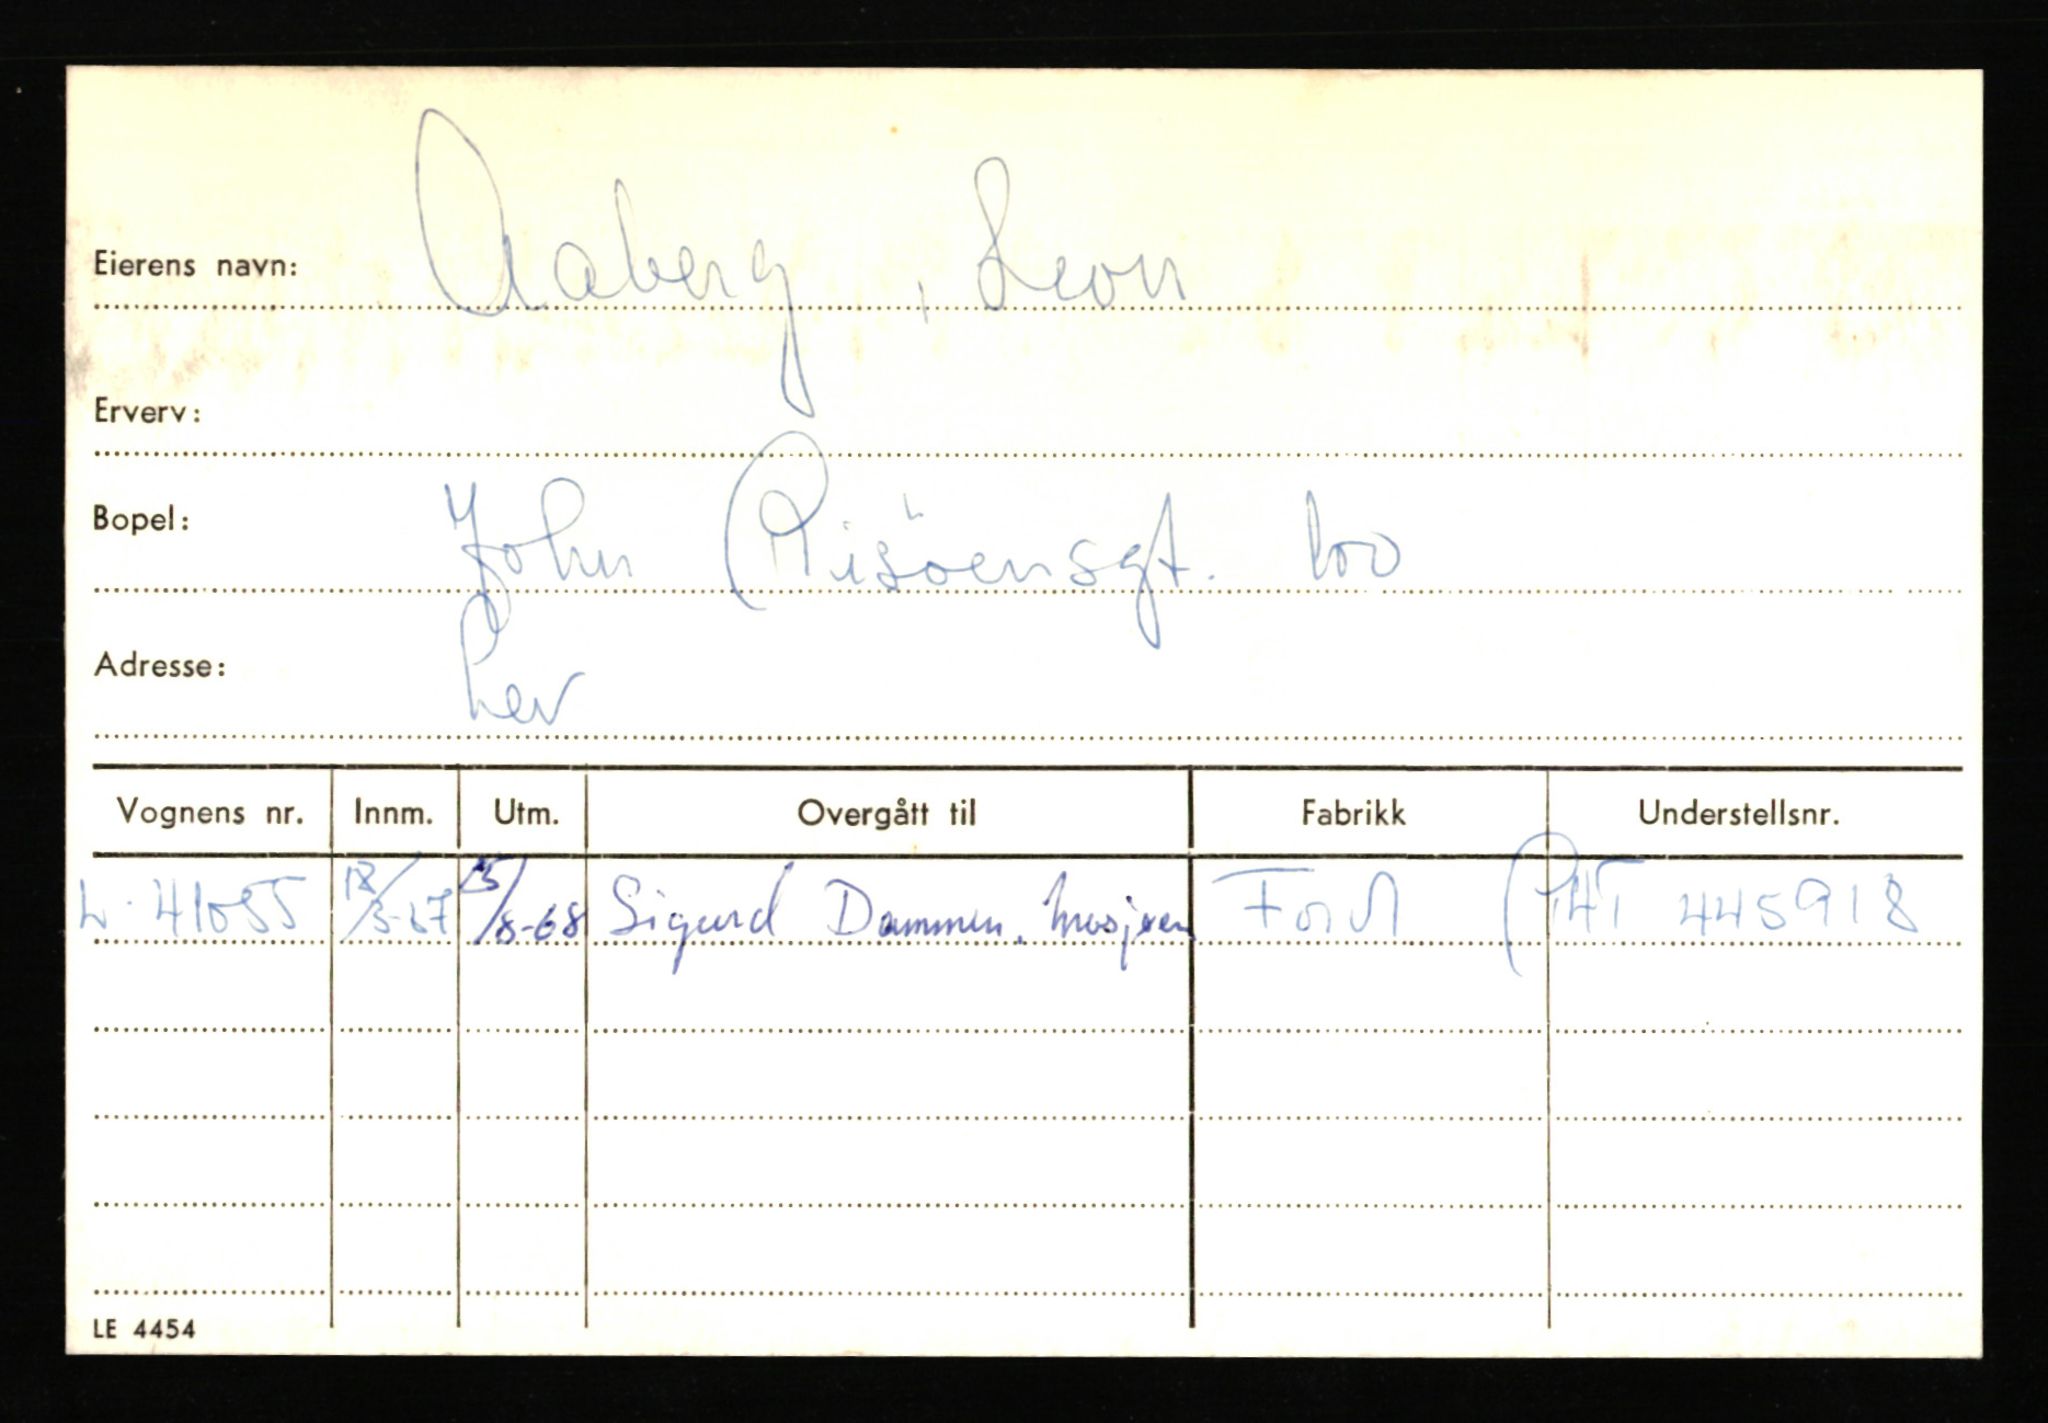 Eierens navn: Aaberg, Leon
Erverv:
Bopel: John Risöensgt. 100
Adresse: her
Vognens nr. Innm. Utm. Overgått til Fabrikk Understellsnr.
L. 41055 18/3-67 15/8-68 Sigurd Dammen, Mosjøen Ford P4T 445918
LE 4454